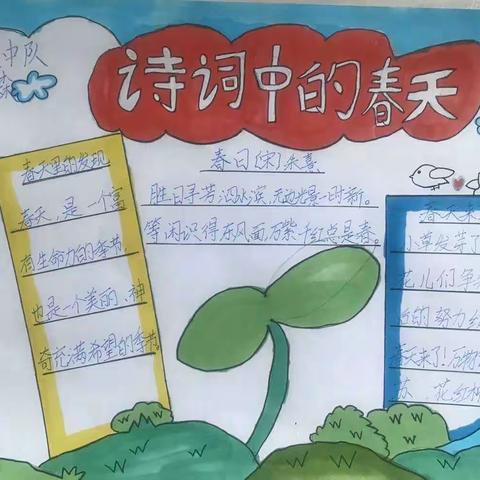 中队
诗词中的春天
春天里的发现
春天，是一个富
有生命力的季节，
也是一个美丽、神
奇充满希望的季节。
春日(宋)朱熹
胜日寻芳泗水滨，无边光景一时新。
等闲识得东风面，万紫千红总是春。
春天来
小草发芽了
花儿们争
的努力
春天来了！万物
苏，花红